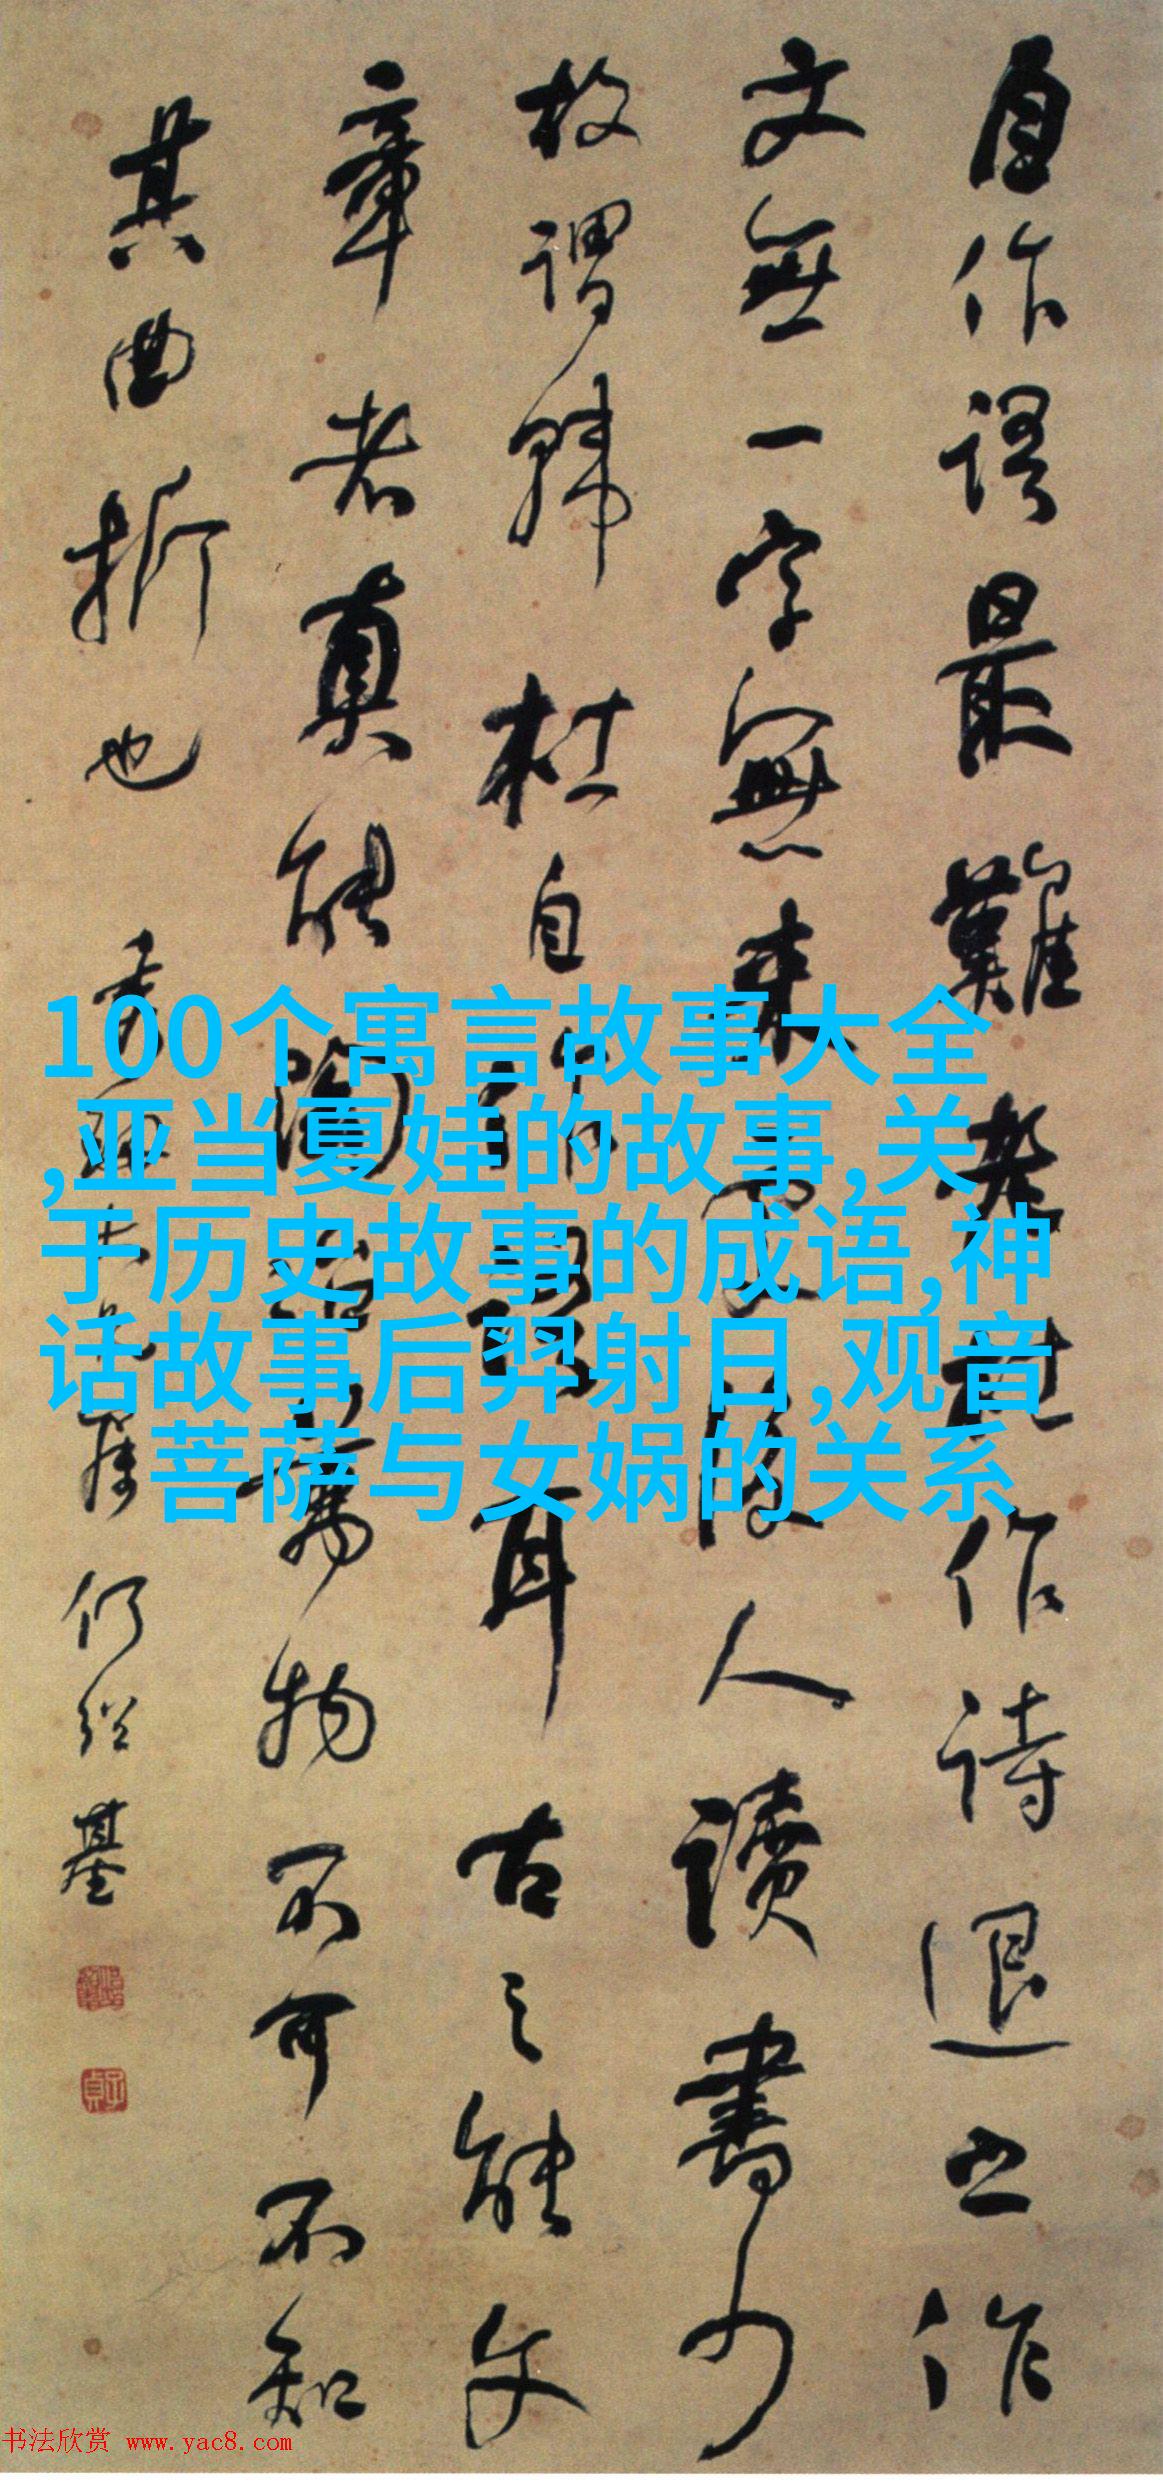 自作語最難老杜作詩退之作
文無一字無来處後人讀書少
故謂韓杜自作此語耳古之能文
章者真能陶冶萬物不可不知
其曲折也
仁兄屬何紹基
100个寓言故事大全
,亚当夏娃的故事,关
于历史故事的成语,神
话故事后羿射日,观音
菩萨与女娲的关系
书法欣赏 www.yac8.com